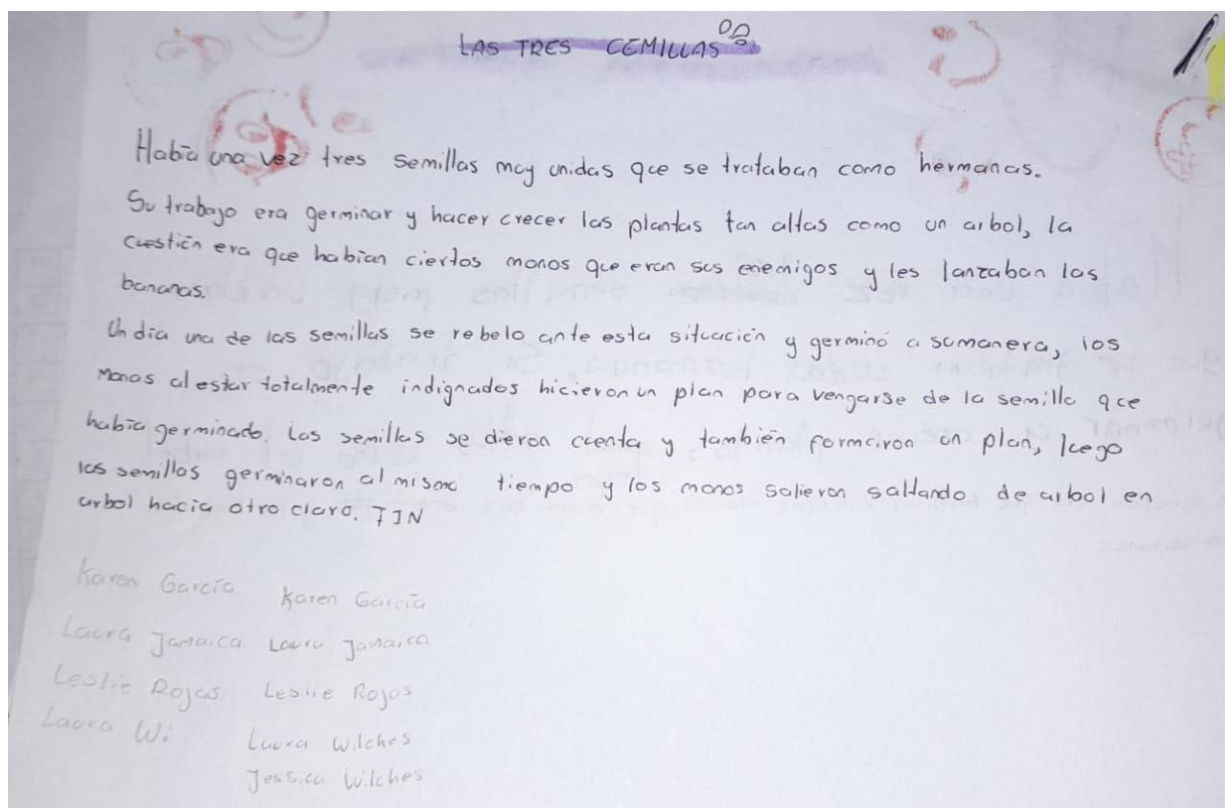 LAS TRES CEMILLAS
Había una vez tres semillas muy unidas que se trataban como hermanas.
Su trabajo era germinar y hacer crecer las plantas tan altas como un arbol, la
cuestión era que habian ciertos monos que eran sus enemigos y les lanzaban las
bananas.
Un dia una de las semillas se rebelo ante esta situación y germinó a sumanera, los
monos al estar totalmente indignados hicieron un plan para vengarse de la semilla que
había germinado. Las semillas se dieron cuenta y también formaron un plan, luego
las semillas germinaron al mismo tiempo y los monos salieron saltando de arbol en
arbol hacia otro claro. FIN
Karen García Karen García
Laura Jamaica Laura Jamaica
Leslie Rojas Leslie Rojas
Laura Wi Laura Wilches
Jessica Wilches